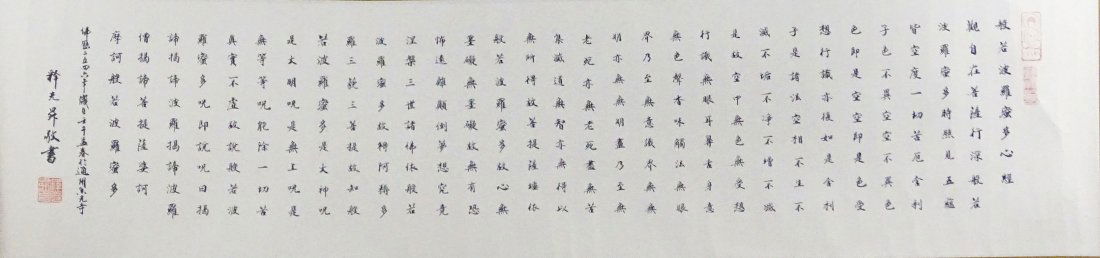 般若波羅蜜多心經
觀自在菩薩行深般若
波羅蜜多時照見五蘊
皆空度一切苦厄舍利
子色不異空空不異色
色即是空空即是色受
想行識亦復如是舍利
子是諸法空相不生不
滅不垢不淨不增不減
是故空中無色無受想
行識無眼耳鼻舌身意
無色聲香味觸法無眼
界乃至無意識界無無
明亦無無明盡乃至無
老死亦無老死盡無苦
集滅道無智亦無得以
無所得故菩提薩埵依
般若波羅蜜多故心無
罣礙無罣礙故無有恐
怖遠離顛倒夢想究竟
涅槃三世諸佛依般若
波羅蜜多故得阿耨多
羅三藐三菩提故知般
若波羅蜜多是大神呪
是大明呪是無上呪是
無等等呪能除一切苦
真實不虛故說般若波
羅蜜多呪即說呪曰揭
諦揭諦波羅揭諦波羅
僧揭諦菩提薩婆訶
摩訶般若波羅蜜多
佛曆二五四六年歲壬午孟春於通州光寺
釋光昇敬書